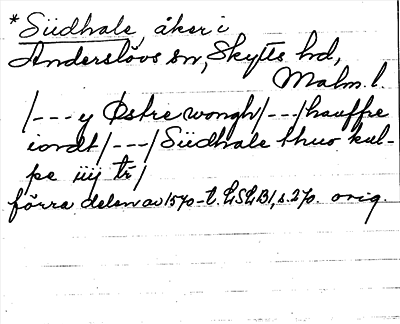 * Südhale, åker i
Anderslövs sn, Skytts hd,
Malm. l.
/---y Østre wongh/---/hauffre
iordt/---/Südhale thuo kul-
pe iiij tr/
förra delen av 1570-t. LSLB1, s. 270. orig.